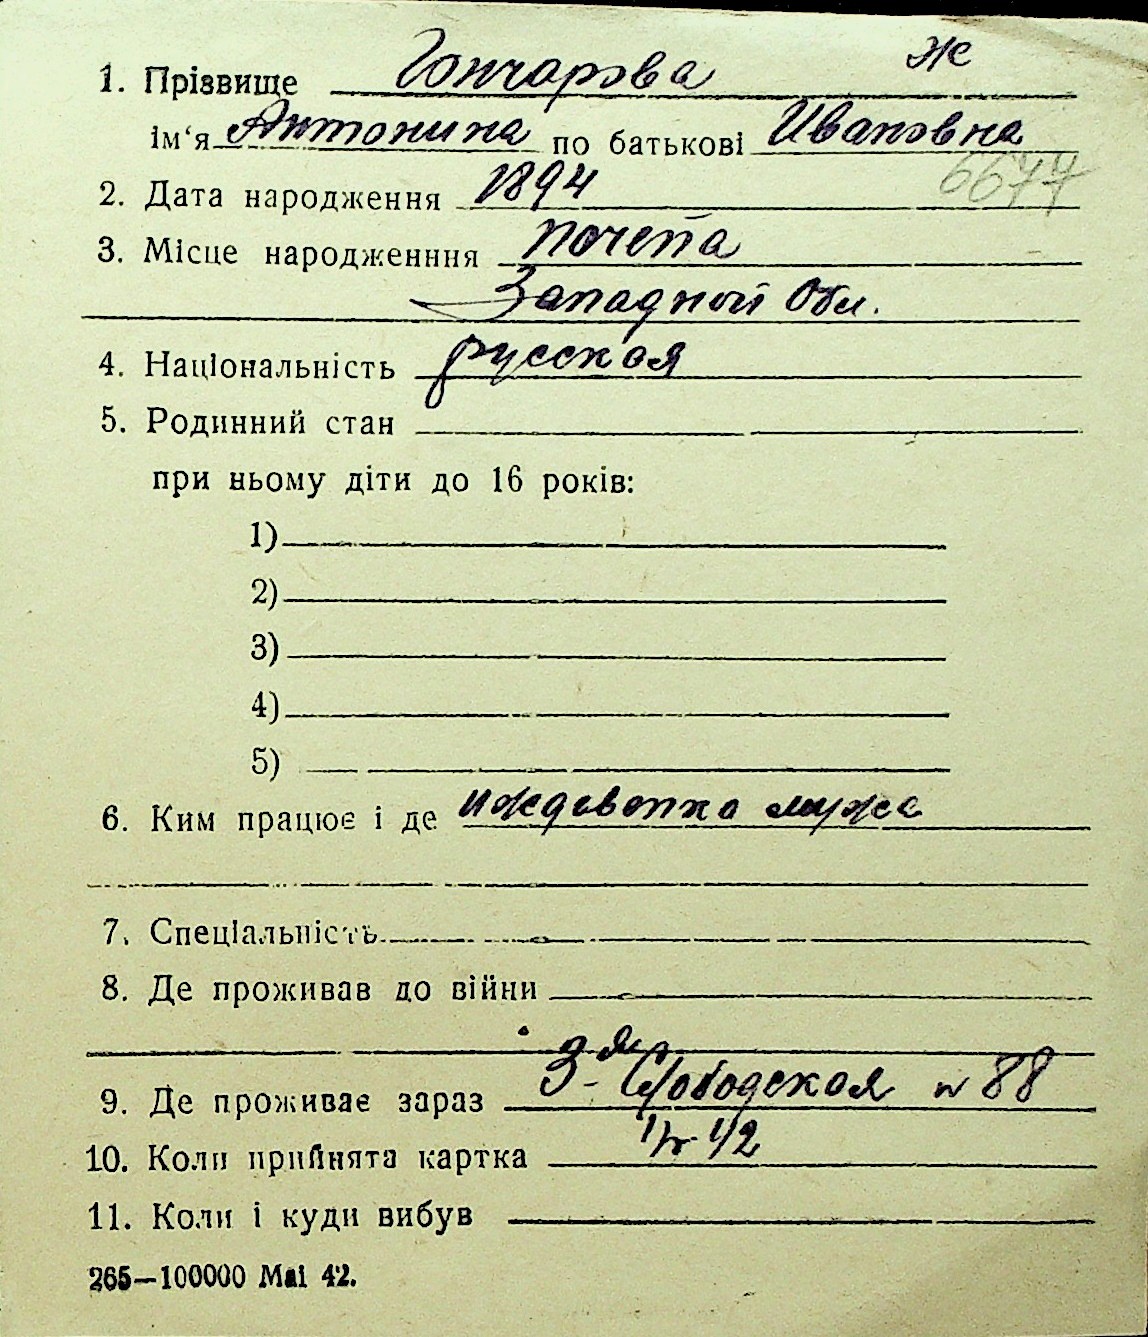 1. Прізвище Гончарова ж
ім'я Антонина по батькові Ивановна
2. Дата народження 1894 6677
3. Місце народженння почепа
Западной Обл.
4. Національність русская
5. Родинний стан
при ньому діти до 16 років:
1)
2)
3)
4)
5)
6. Ким працює і де иждивенка мужа
7. Спеціальність
8. Де проживав до війни
9. Де проживає зараз 3-я Слободская № 88
10. Коли прийнята картка
11. Коли і куди вибув
265—100000 Маі 42.